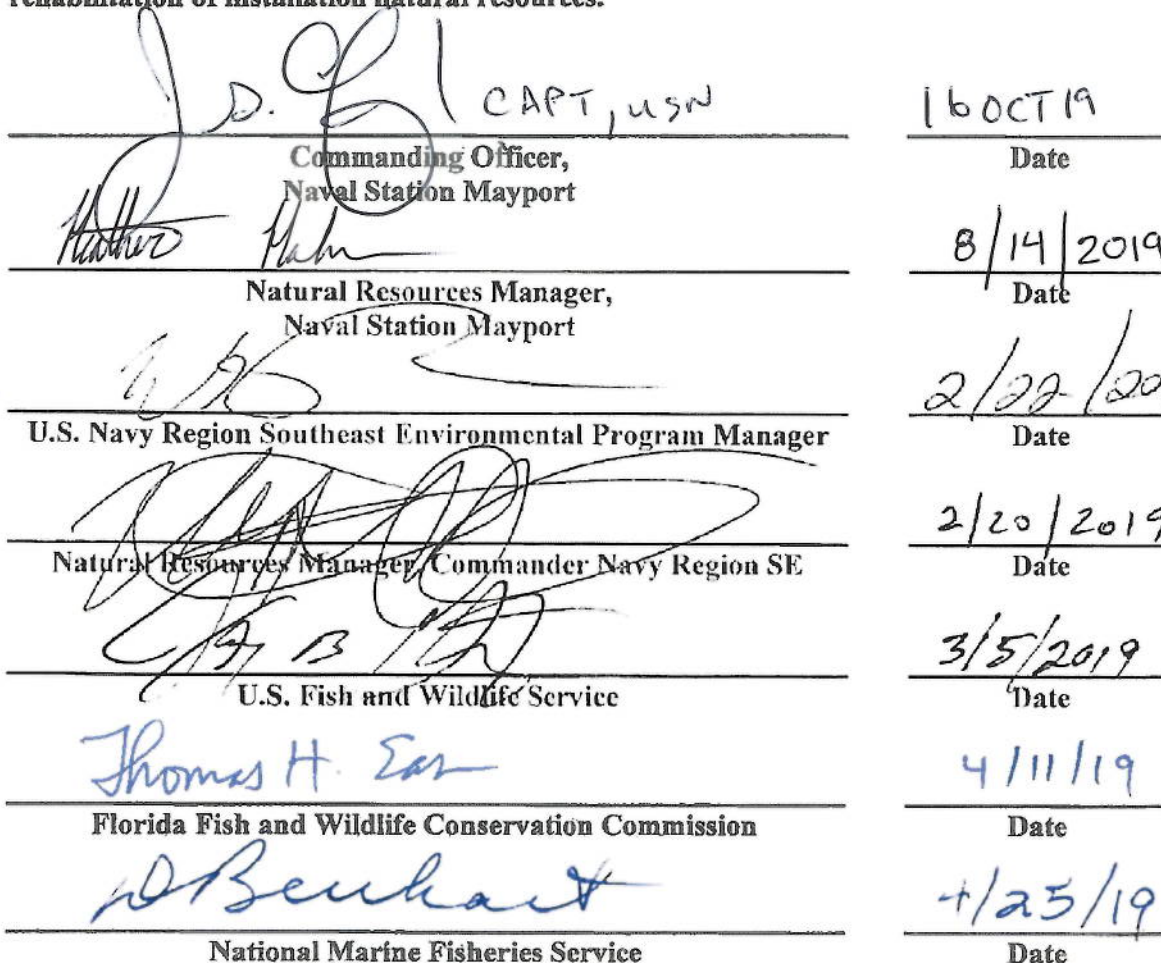 rehabilitation of installation natural resources.
J D. CAPT, USN 16 OCT 19
Commanding Officer, Date
Naval Station Mayport
Heather 8/14/2019
Natural Resources Manager, Date
Naval Station Mayport
2/22/20
U.S. Navy Region Southeast Environmental Program Manager Date
2/20/2019
Natural Resources Manager, Commander Navy Region SE Date
B 3/5/2019
U.S. Fish and Wildlife Service Date
Thomas H. 4/11/19
Florida Fish and Wildlife Conservation Commission Date
D Bernhart 4/25/19
National Marine Fisheries Service Date